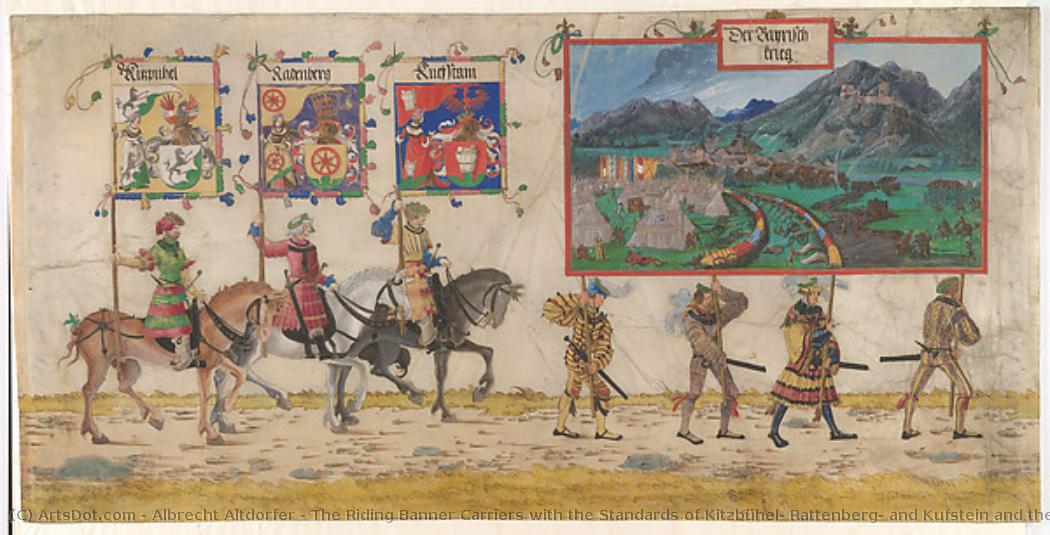 Kizpuhel
Radenberg
Kuefstain
Der Bayrisch
krieg
(C) ArtsDot.com - Albrecht Altdorfer - The Riding Banner Carriers with the Standards of Kitzbühel- Rattenberg- and Kufstein and the